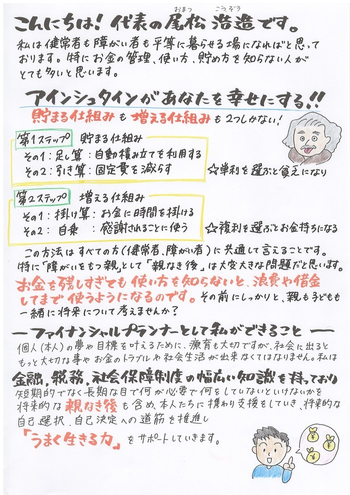 おまつ こうぞう
こんにちは! 代表の尾松 浩造です。
私は健常者も障がい者も平等に暮らせる場になればと思って
おります。特にお金の管理、使い方、貯め方を知らない人が
とても多いと思います。
アインシュタインがあなたを幸せにする!!
貯まる仕組みも増える仕組みも2つしかない!
第1ステップ 貯まる仕組み
その1: 足し算: 自動積み立てを利用する
その2: 引き算: 固定費を減らす
☆単利を選ぶと貧乏になり
第2ステップ 増える仕組み
その1: 掛け算: お金に時間を掛ける
その2: 自乗 : 感謝されることに使う
☆複利を選ぶとお金持ちになる
この方法はすべての方(健常者、障がい者)に共通して言えることです。
特に「障がいをもつ親」として「親なき後」は大変大きな問題だと思います。
お金を残しすぎても使い方を知らないと、浪費や借金
してまで使うようになるのです。その前にしっかりと、親も子どもも
一緒に将来について考えませんか?
ーファイナンシャルプランナーとして私ができることー
個人(本人)の夢や目標を叶えるために、療育も大切ですが、社会に出ると
もっと大切な事やお金のトラブルや社会生活が出来なくてはなりません。私は
金融、税務、社会保障制度の幅広い知識を持っており
短期的でなく長期な目で何が必要で何をしていないといけないかを
将来的な親なき後も含め、本人たちに携わり支援をしていき、将来的な
自己選択、自己決定への道筋を推進し
「うまく生きる力」をサポートしていきます。